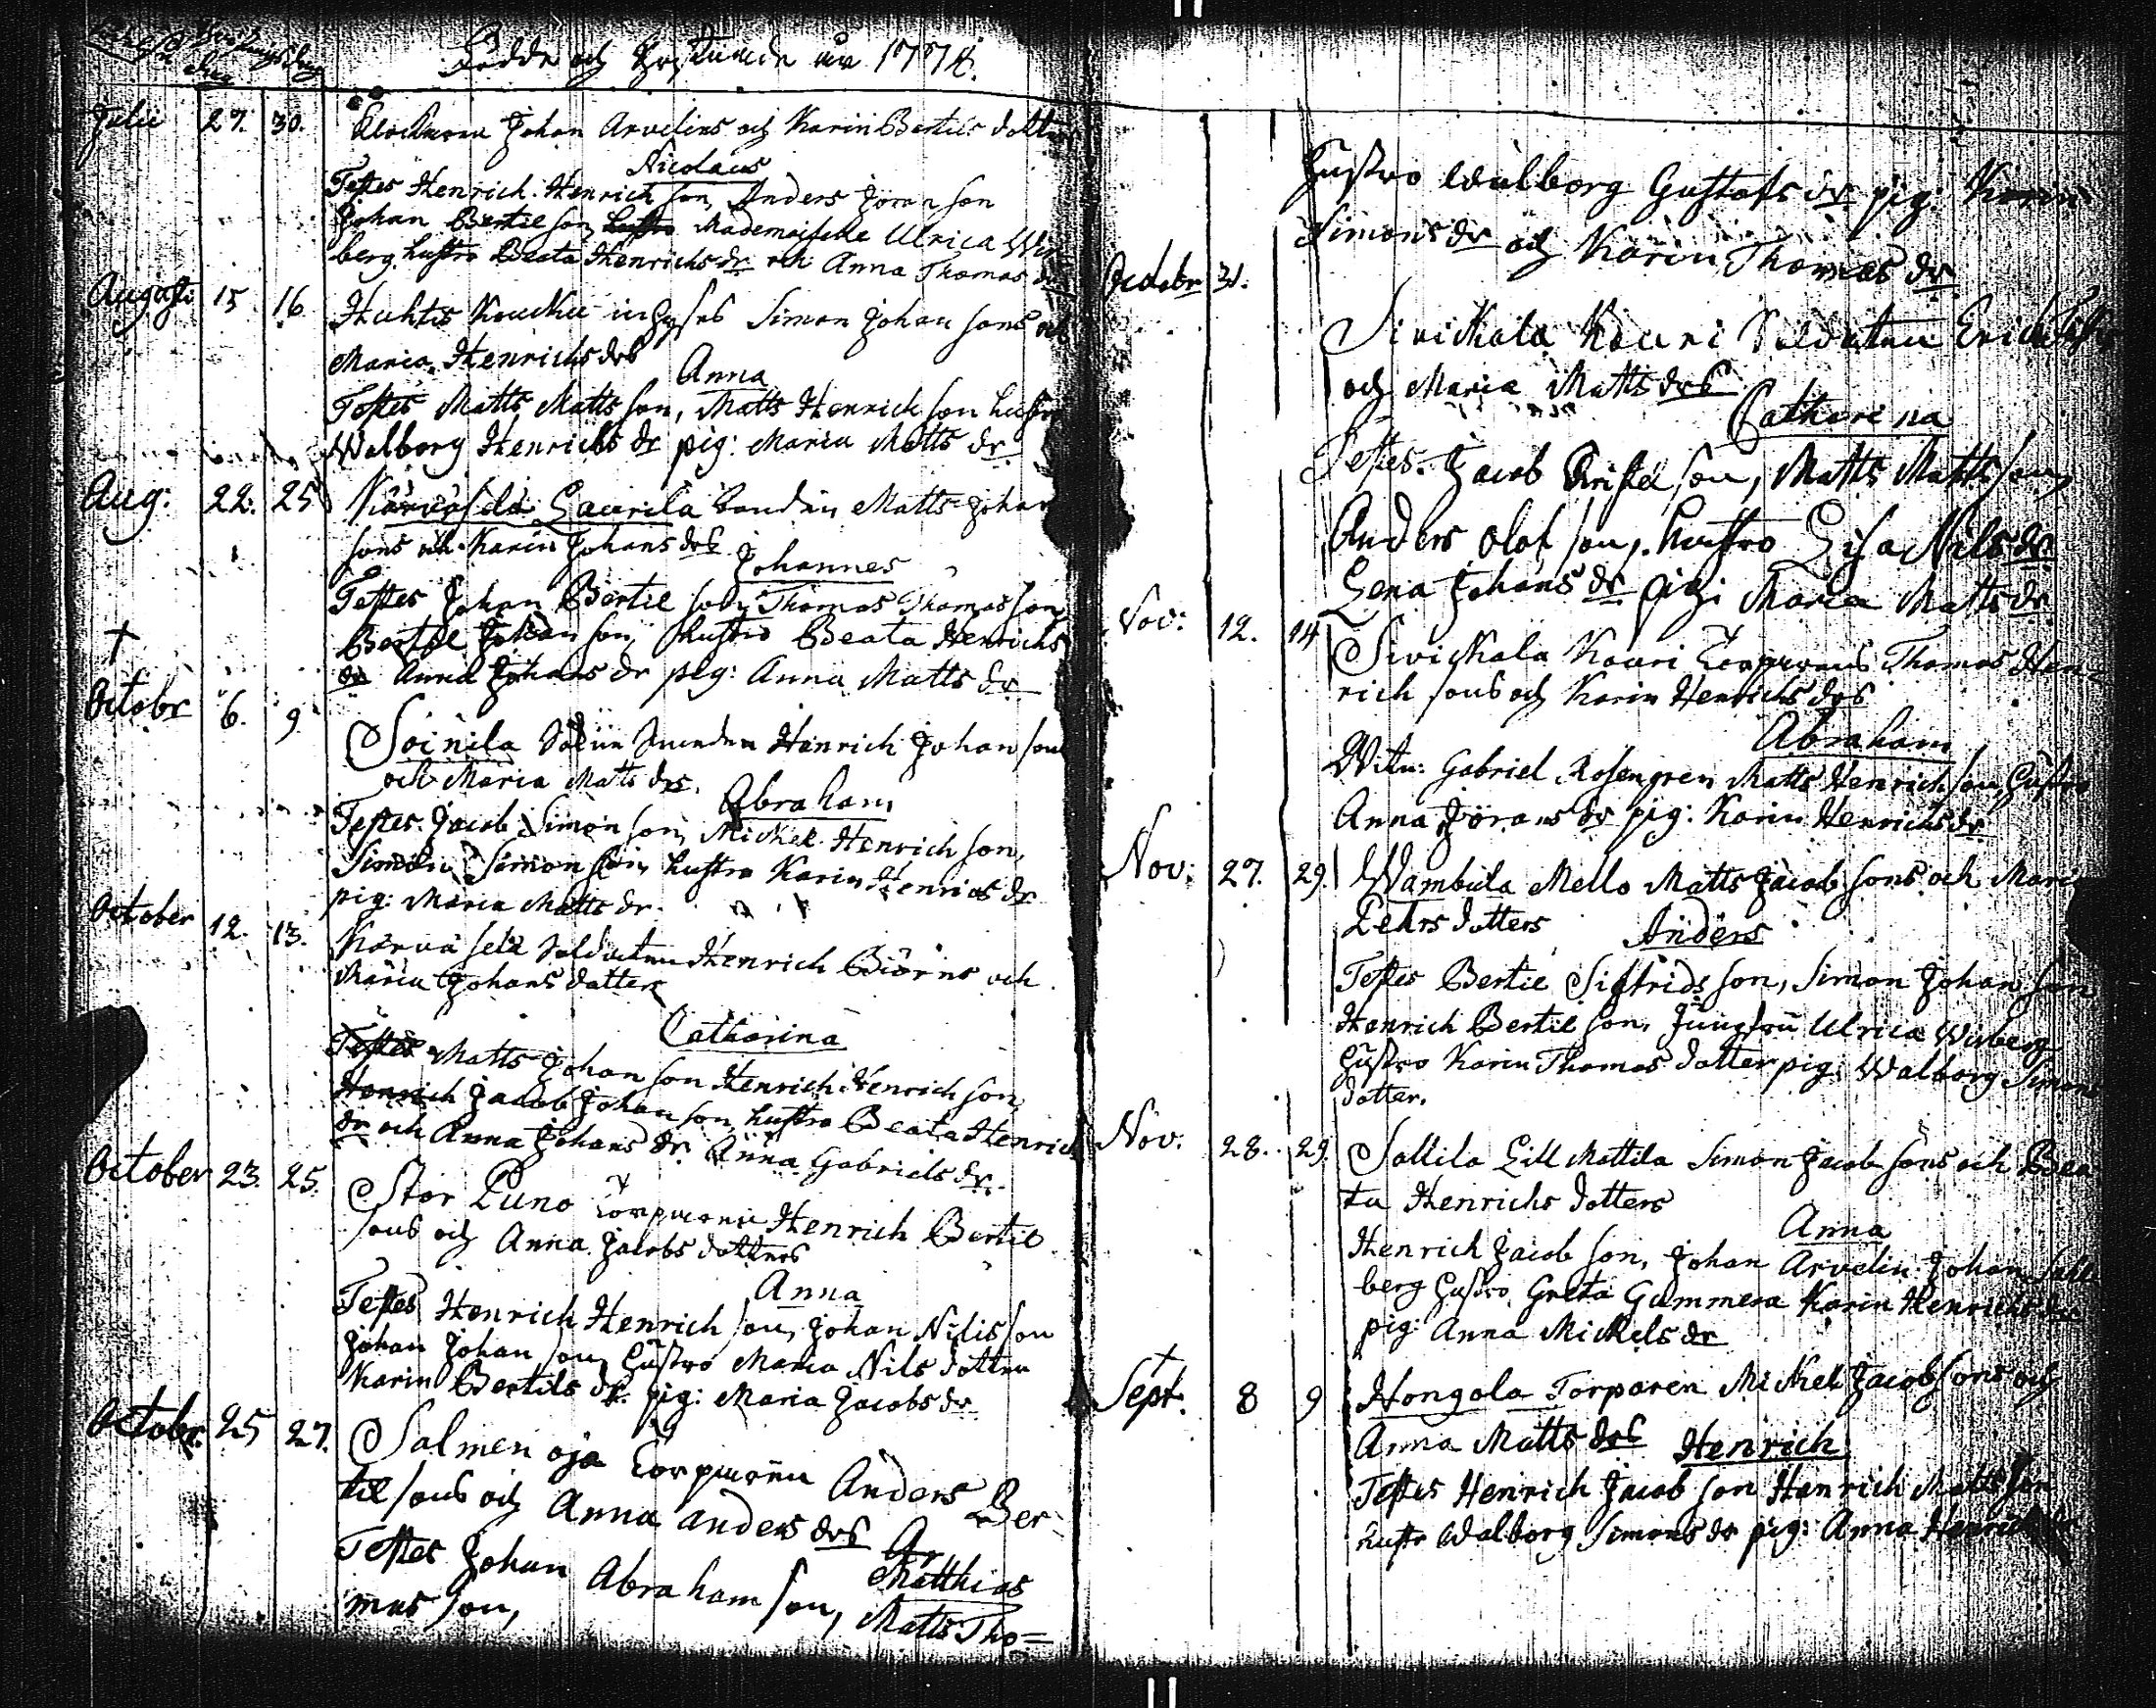 Födde och Christnade åar 1774.
Julii 27. 30. Klockaren Johan Arvelins och Karin Bertils dotters
Nicolaus
Testes Henrich Henrich son, Anders Jöran son
Johan Bertil son, Mademoiselle Ulrica Wir
berg hustro Beata Henrichs dr och Anna Thomas dr
Augusti 15 16 Huhtis Koucku inhyses Simon Johan sons och
Maria Henrichs drs
Anna
Testes Matts Matts son, Matts Henrich son hustro
Walborg Henrichs dr pig: Maria Matts dr
Aug: 22. 25 Kärväselä Laurila bonden Matts Johan
sons och Karin Johans drs
Johannes
Testes Johan Bertil son, Thomas Thomas son
Bertil Johan son, hustro Beata Henrichs
dr Anna Johans dr pig: Anna Matts dr
†
Octobr 6. 9. Soinila Henrich Johan sons
och Maria Matts drs.
Abraham
Testes Jacob Simon son, Mickel Henrich son,
Simon Simon son, hustro Karin Henrics dr
pig: Maria Matts dr
October 12. 13. Kärvä selä Soldaten Henrich Biörns och
Maria Johans dotters
Catharina
Testes Matts Johan son Henrich Henrich son,
Henrich Jacob Johan son, hustro Beata Henrich
dr och Anna Johans dr Anna Gabriels dr.
October 23. 25. Stor Puno Torparens Henrich Bertil
sons och Anna Jacobs dotters
Anna
Testes Henrich Henrich son, Johan Nilsson
Johan Johan son, Hustro Maria Nils dotter
Karin Bertils dr. pig: Maria Jacobs dr
Octobr. 25 27. Salmen oja Torparen Anders Ber
til sons och Anna anders drs
Matthias
Testes Johan Abraham son, Matts Tho=
mas son,
Hustro Walborg Gustafs dr pig: Karin
Simons dr och Karin Thomas dr
Octobr 31.
Sirickala Kouri Soldaten Erick
och Maria Matts drs
Catharina
Testes. Jacob Cristel son, Matts Matts son,
Anders Olof son, hustro Lisa Nils dr
Lena Johans dr pig: Maria Matts dr
Nov: 12. 14 Sirickala Kouri Torparens Thomas Hen=
rich sons och Karin Henrichs drs
Abraham
Witn: Gabriel Rosengren Matts Henrich son, Hustro
Anna Jörans dr pig: Karin Henrichs dr
Nov: 27. 29. Wambula Mello Matts Jacob sons och Mari
Pehrs dotters
Anders
Testes Bertil Sigfrids son, Simon Johan son
Henrich Bertil son, Jungfru Ulrica Wirberg
Hustro Karin Thomas dotter pig: Walborg Simons
dotter.
Nov. 28. 29. Sallila Lill Mattila Simon Jacob sons och Bea
ta Henrichs dotters
Anna
Henrich Jacob son, Johan Arvelin Johan Sahl
berg Hustro Greta Gammera Karin Henrichs dr
pig: Anna Mickels dr
†
Sept. 8 9 Hongola Torparen Mickel Jacobsons och
Anna Matts drs Henrich
Testes Henrich Jacob son Henrich Matts son
hustr Walborg Simons dr pig: Anna Henrichs